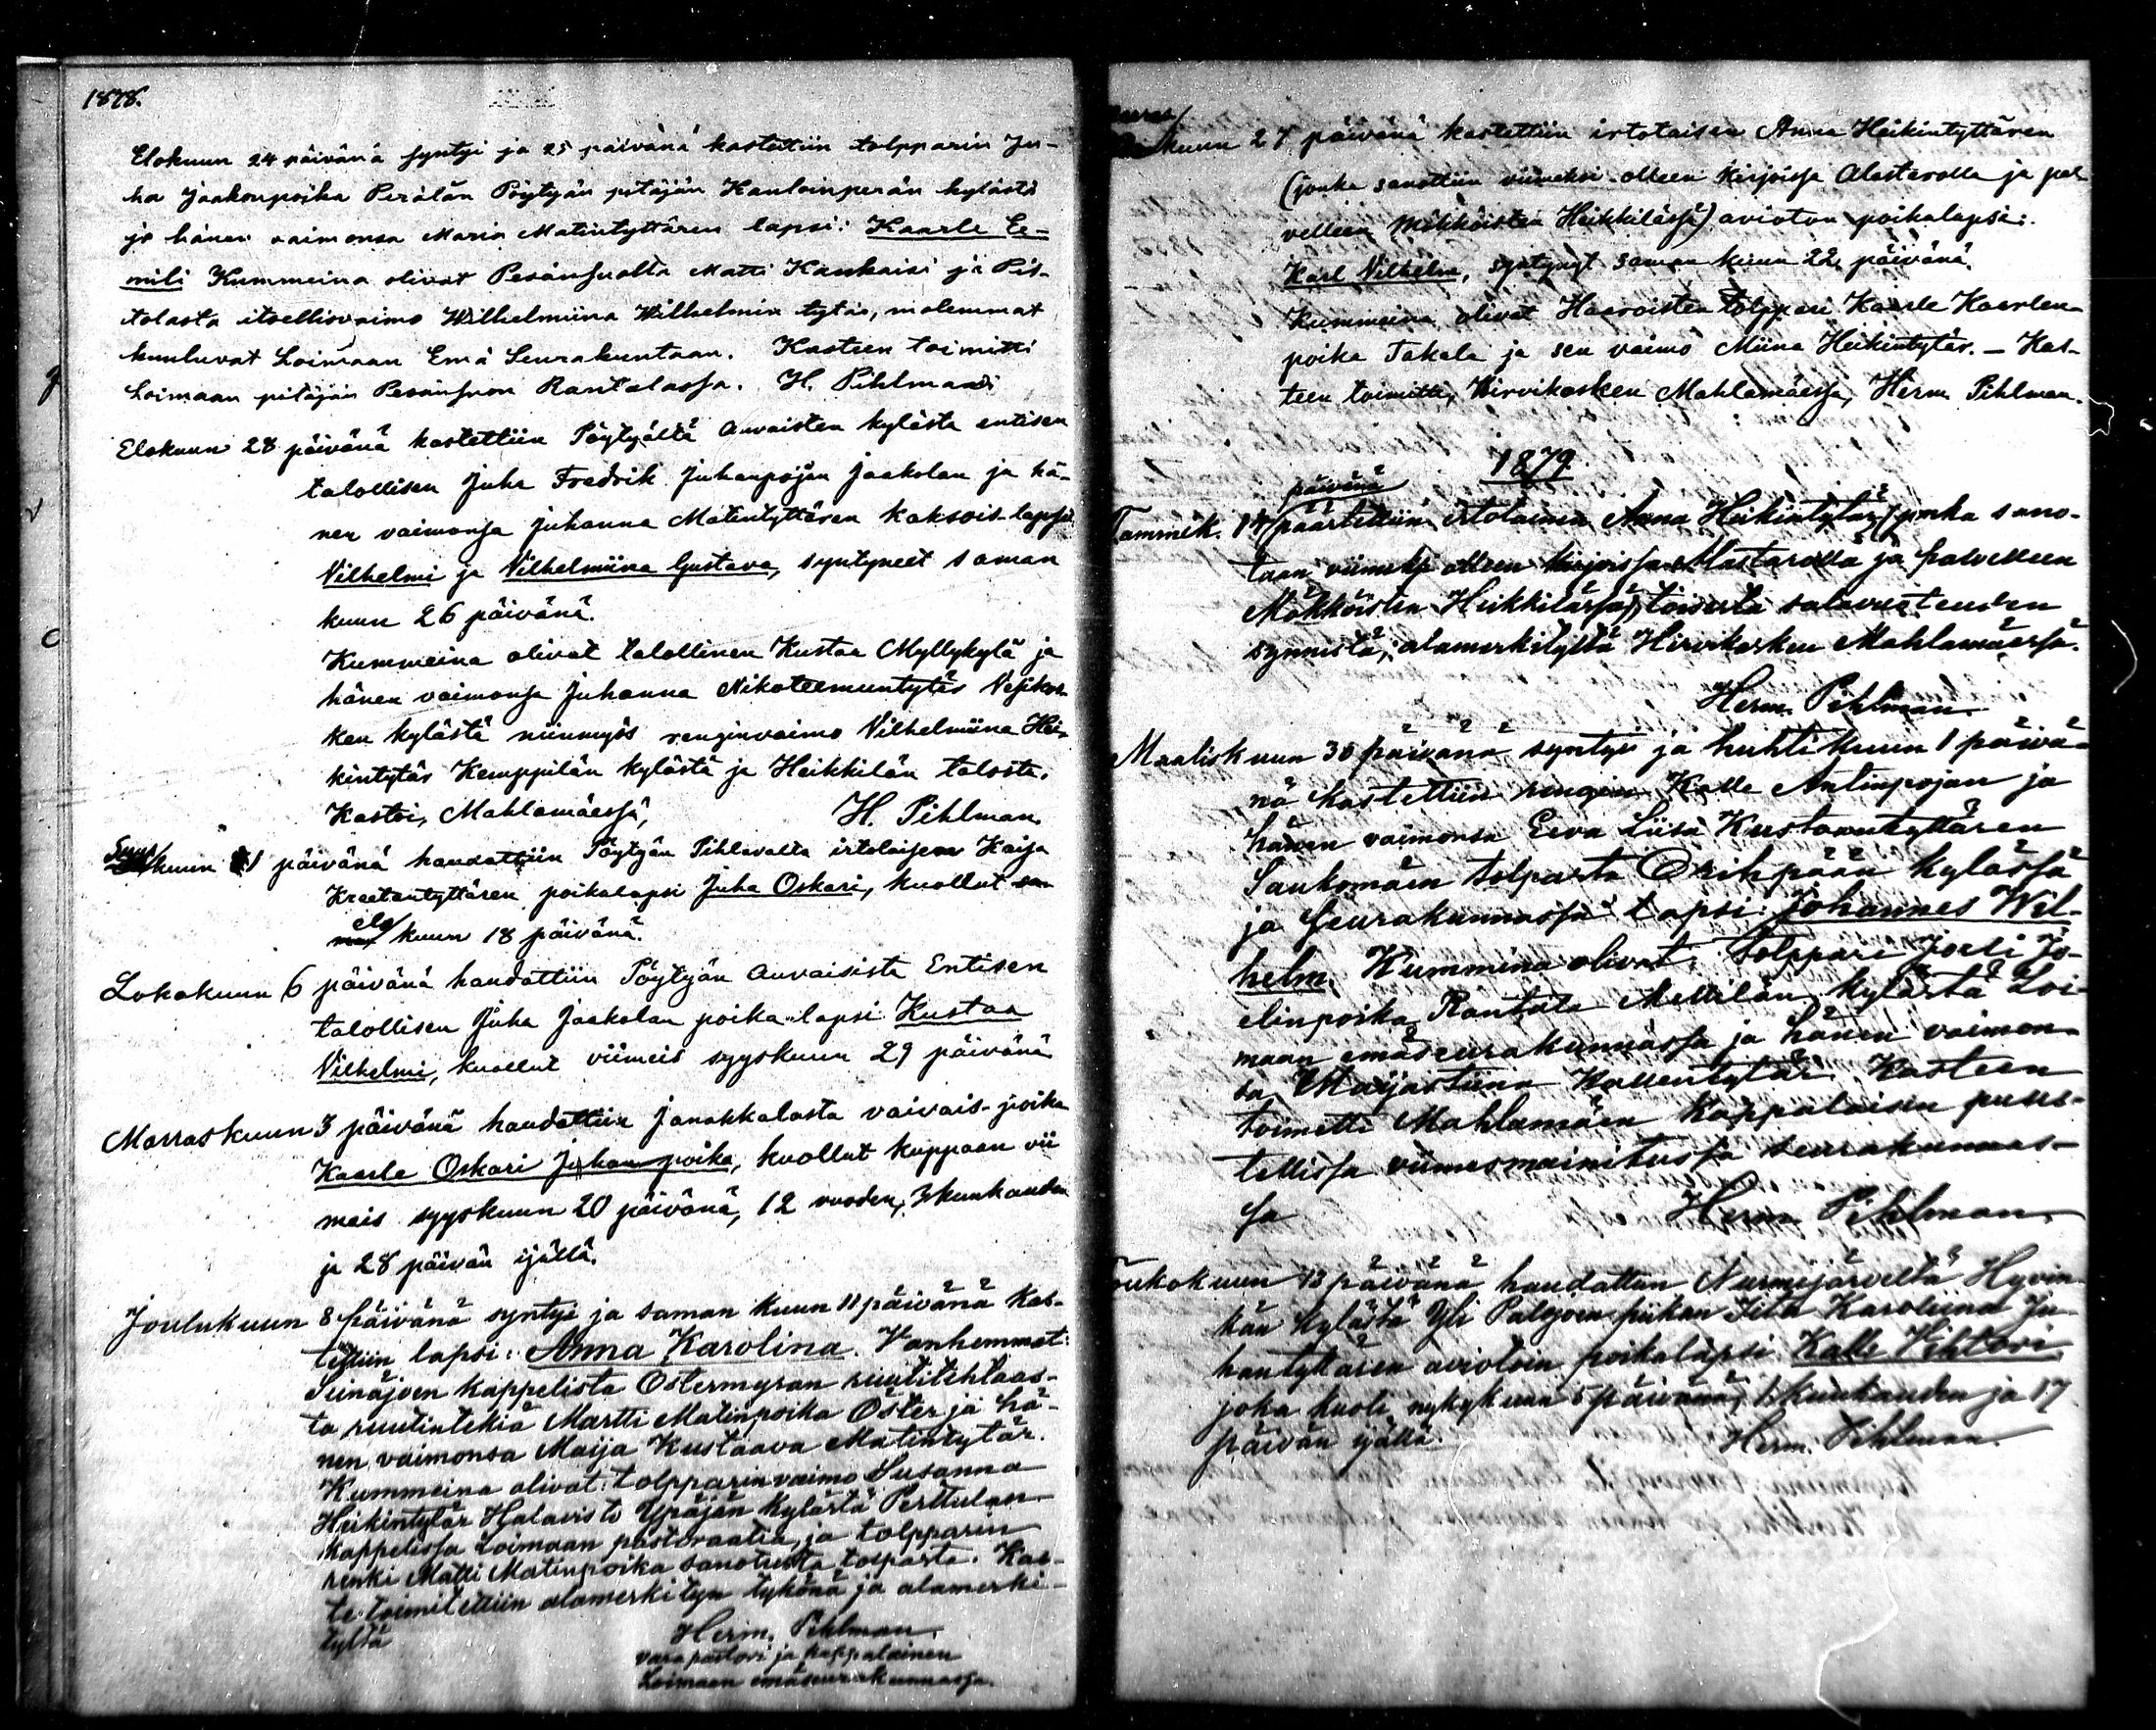 1878.
Elokuun 24 päivänä syntyi ja 25 päivänä kastettiin tolpparin Ju-
ha Jaakonpoika Perälän Pöytyän pitäjän Hauloinperän kylästä
ja hänen vaimonsa Maria Matintyttären lapsi: Kaarle Ee-
mili Kummeina olivat Pesänsuolta Matti Kankaisi ja Pis-
tolasta itsellisvaimo Wilhelmiina Wilhelmin tytär, molemmat
kuuluvat Loimaan Emä Seurakuntaan. Kasteen toimitti
Loimaan pitäjän Pesänsuon Rantalassa. H. Pihlman
Elokuun 28 päivänä kastettiin Pöytyältä Auvaisten kylästä entisen
talollisen Juha Fredrik Juhanpojan Jaakolan ja hä-
nen vaimonsa Juhanna Matintyttären kaksois-lapset
Vilhelmi ja Vilhelmiina Gustava, syntyneet saman
kuun 26 päivänä.
Kummeina olivat talollinen Kustaa Myllykylä ja
hänen vaimonsa Juhanna Nikoteemuntytär Vesikos-
ken kylästä niinmyös renginvaimo Vilhelmiina Hei-
kintytär Kemppilän kylästä ja Heikkilän talosta.
Kastoi, Mahlamäessä, H. Pihlman.
Syys/kuun 1 päivänä haudattiin Pöytyän Pihlavalta irtolaisen Kaisa
Kreetantyttären poikalapsi Juha Oskari, kuollut
elo/kuun 18 päivänä.
Lokakuun 6 päivänä haudattiin Pöytyän Auvaisista Entisen
talollisen Juha Jaakolan poika-lapsi Kustaa
Vilhelmi, kuollut viimeis syyskuun 29 päivänä
Marraskuun 3 päivänä haudattiin Janakkalasta vaivais-poika
Kaarle Oskari Juhanpoika, kuollut kuppaan vii
meis syyskuun 20 päivänä, 12 vuoden, 7 kuukauden
ja 28 päivän ijällä.
Joulukuun 8 päivänä syntyi ja saman kuun 11 päivänä kas-
tettiin lapsi: Anna Karolina. Vanhemmat:
Seinäjoen kappelista Östermyran ruutitehtaas-
ta ruutintekiä Martti Matinpoika Öster ja hä-
nen vaimonsa Maija Kustaava Matintytär.
Kummeina olivat: tolpparinvaimo Susanna
Heikintytär Halavisto Ypäjän kylästä Perttulan
kappelissa Loimaan pastoraatia, ja tolpparin
renki Matti Matinpoika sanotusta torpasta. Kas-
te toimitettiin alamerkityn tykönä ja alamerki-
tyltä Herm. Pihlman.
varapastori ja kappalainen
Loimaan emäseurakunnassa.
kuun 27 päivänä kastettiin irtolaisen Anna Heikintyttären
(jonka sanottiin viimeksi olleen kirjoissa Alastarolla ja pal-
velleen Mäkköisten Heikkilässä) aviotoin poikalapsi:
Karl Vilhelm, syntynyt saman kuun 22 päivänä.
Kummeina olivat Haaroisten tolppari Kaarle Kaarlen-
poika Takala ja sen vaimo Miina Heikintytär. — Kas-
teen toimitti, Hirvikosken Mahlamäessä, Herm. Pihlman.
1879.
päivänä
Tammik. 14 päästettiin irtolainen Anna Heikintytär (jonka sano-
taan viimeksi olleen kirjoissa Alastarolla ja palvelleen
Mäkköisten Heikkilässä), toisesta salavuoteuden
synnistä, alamerkityltä Hirvikosken Mahlamäessä.
Herm. Pihlman.
Maaliskuun 30 päivänä syntyi ja huhtikuun 1 päivä-
nä kastettiin rengin Kalle Antinpojan ja
hänen vaimonsa Eeva Liisa Kustaantyttären
Saukomäen tolpasta Orihpään kylässä
ja seurakunnassa lapsi: Johannes Wil-
helm. Kummina olivat: Tolppari Joeli Jo-
elinpoika Rantala Mellilän kylästä Loi-
maan emäseurakunnassa ja hänen vaimon-
sa Maijastiina Kallentytär. Kasteen
toimitti Mahlamäen kappalaisen puus-
tellissa viimesmainitussa seurakunnas-
sa Herm. Pihlman.
Toukokuun 13 päivänä haudattun Nurmijärveltä Hyvin-
kän kylästä Yli Palojoen piikan Iita Karoliina Ju-
hantyttären aviotoin poikalapsi Kalle Vihtori
joka kuoli nykykuun 5 päivänä, 1 kuukauden ja 17
päivän ijällä. Herm. Pihlman.